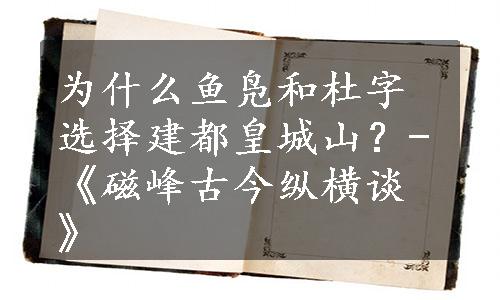 为什么鱼凫和杜宇
选择建都皇城山？-
《磁峰古今纵横谈
》